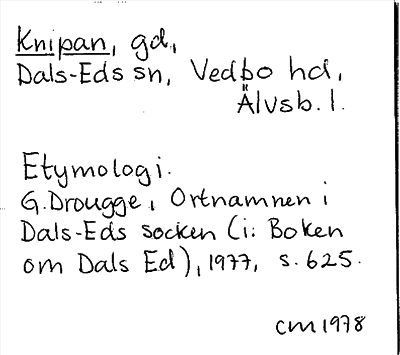 Knipan, gd,
Dals-Eds sn, Vedbo hd,
Älvsb. l.
Etymologi.
G. Drougge, Ortnamnen i
Dals-Eds socken (i: Boken
om Dals Ed), 1977, s. 625.
CM 1978